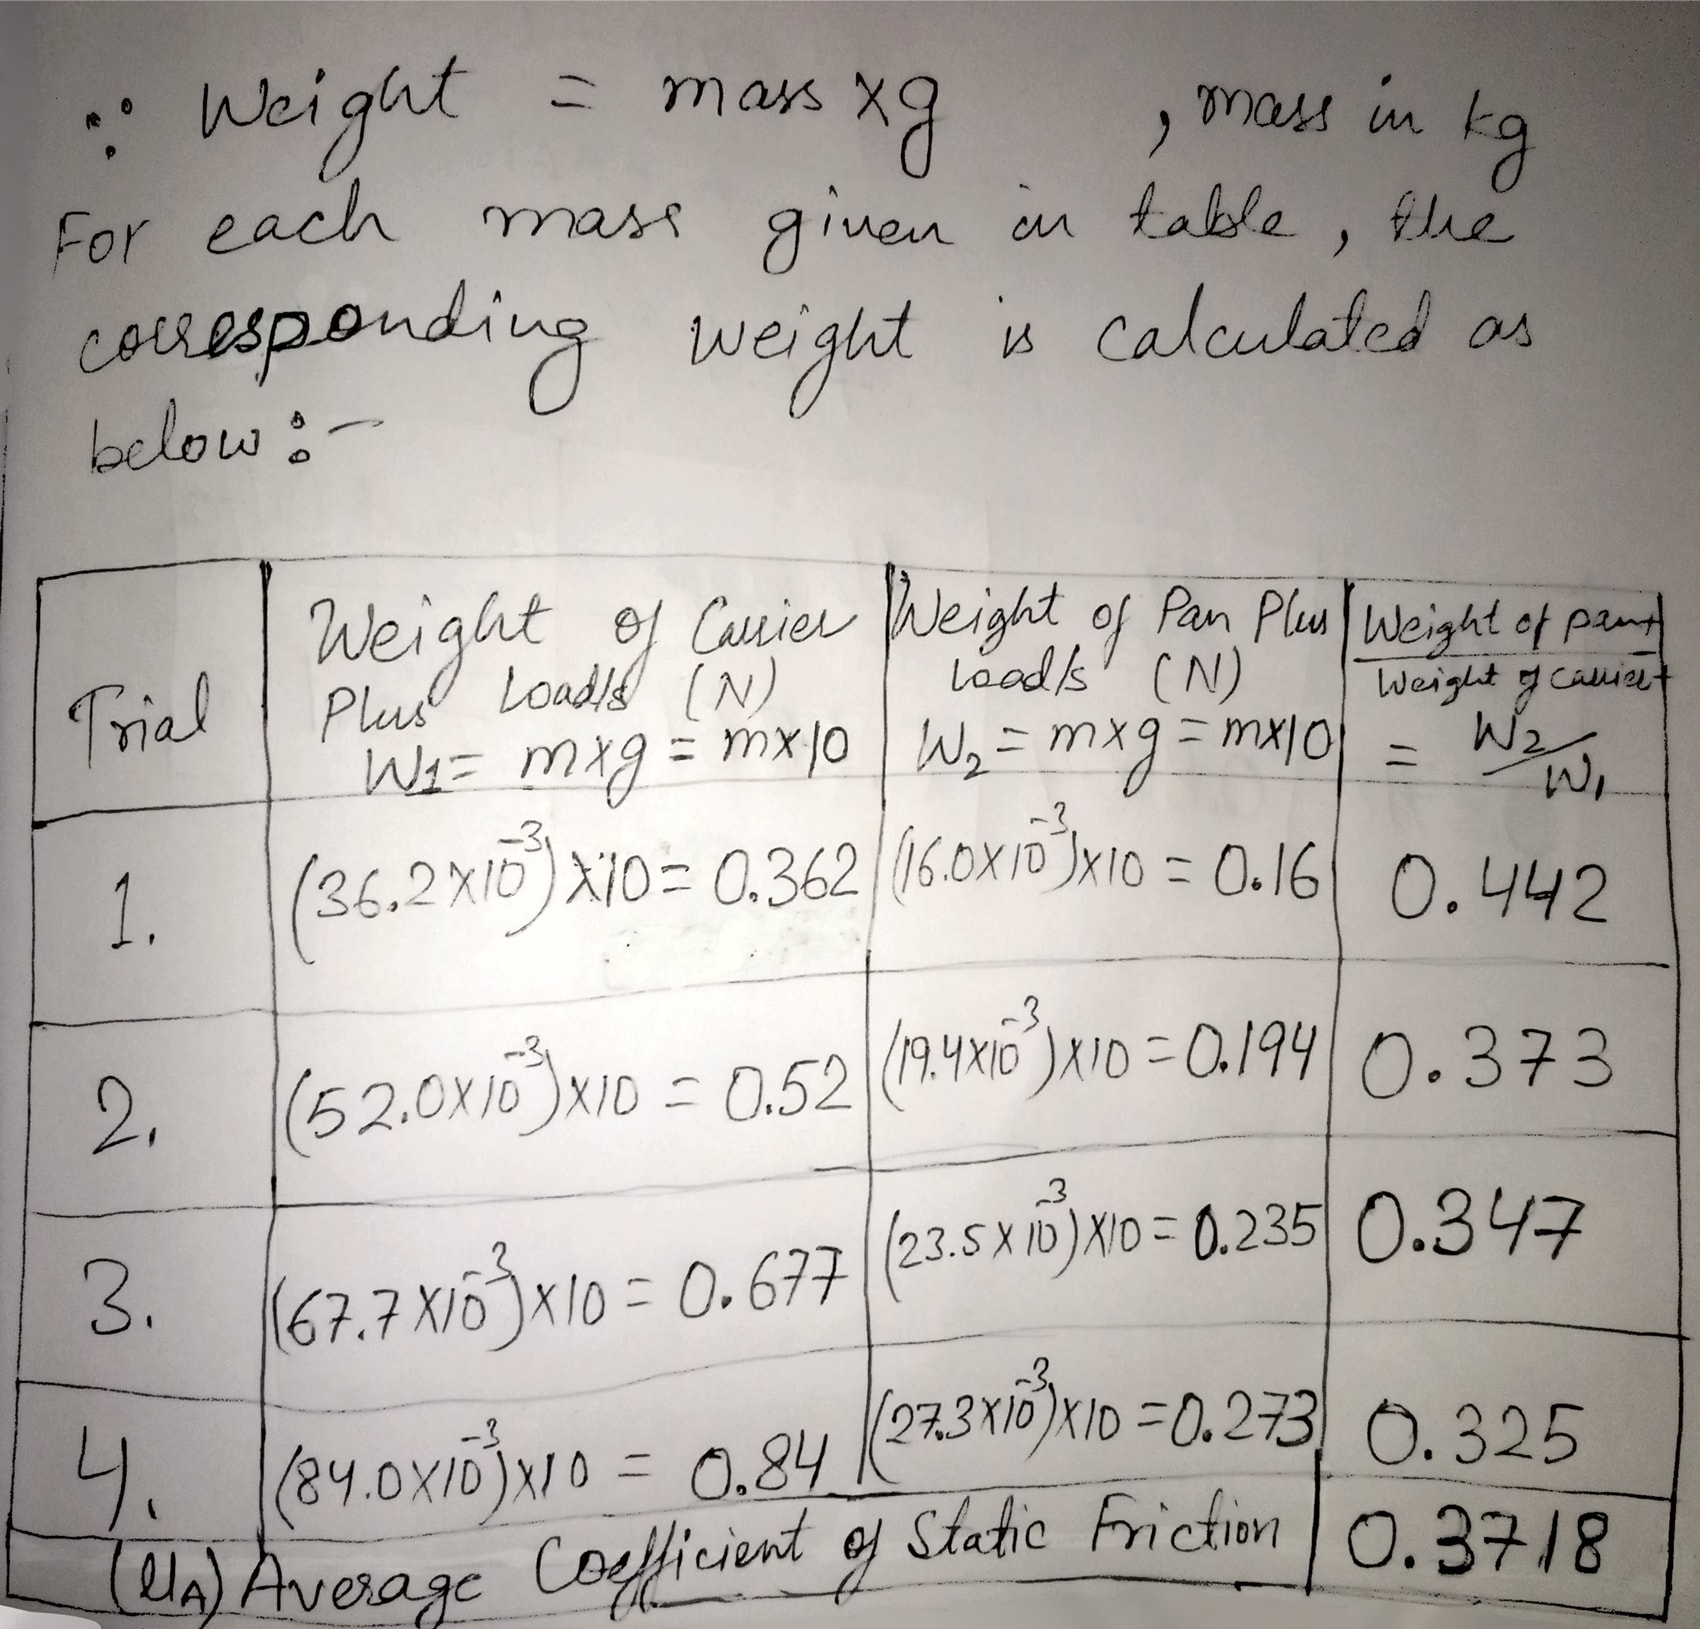 ∵ Weight = mass × g , mass in kg
For each mass given in table, the
corresponding weight is calculated as
below :-
Trial
Weight of Carrier
Plus Load/s (N)
W₁ = m×g = m×10
Weight of Pan Plus
Load/s (N)
W₂ = m×g = m×10
Weight of pan+
Weight of carrier+
= W₂/W₁
1. (36.2×10⁻³)×10 = 0.362 (16.0×10⁻³)×10 = 0.16 0.442
2. (52.0×10⁻³)×10 = 0.52 (19.4×10⁻³)×10 = 0.194 0.373
3. (67.7×10⁻³)×10 = 0.677 (23.5×10⁻³)×10 = 0.235 0.347
4. (84.0×10⁻³)×10 = 0.84 (27.3×10⁻³)×10 = 0.273 0.325
(μA) Average Coefficient of Static Friction 0.3718